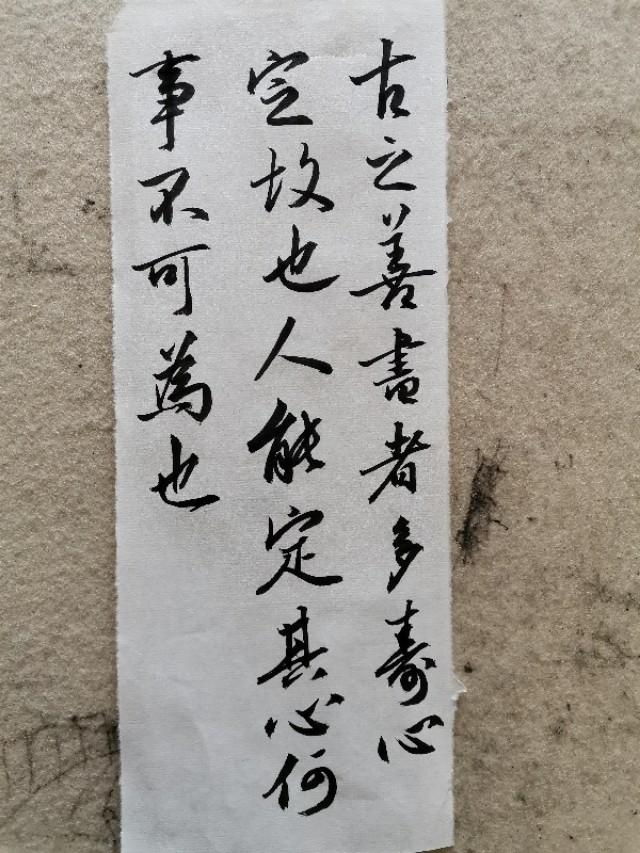 古之善書者多壽心
定故也人能定其心何
事不可為也